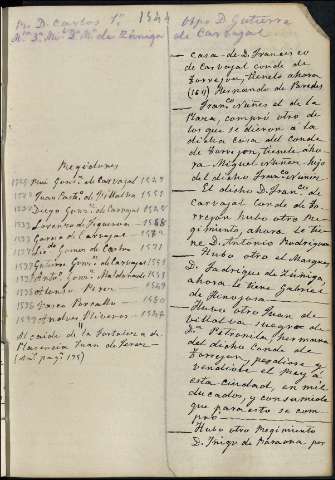 Po D. Carlos 1º 1544 Obpo D. Gutierre
Mqs D. de Zúñiga de Carbajal
Regidores
Ruy Gonz. de Carvajal 1549
Juan de Villalva 1551
Diego Gonz. de Carvajal
Lorenzo de Figueroa 1558
Garcia de Carvajal
Gomez de Castro 1571
Gutierre Gonz. de Carvajal
Antº Gomz. Maldonado
Alonso Perez 1569
Vasco Porcallo 1580
Andres Oliveros 1544
Alcaide de la Fortaleza de
Plasencia Juan de Perez
(Alº pag. 175)
casa de D. Francisco
de Carvajal conde de
Torrejon, tienelo ahora
Hernando de Paredes
Franco. Nuñez el de la
Plaza, compró otro de
los que se dieron á la
dicha casa del conde
de Torrejon, tienele aho-
ra Miguel Nuñez hijo
del dicho Franco. Nuñez
El dicho D. Franco. de
Carvajal conde de To-
rrejon hubo otro Re-
gimiento, ahora le tie-
ne D. Antonio Rodriguez
Hubo otro el Marques
D. Fadrique de Zúñiga
ahora le tiene Gabriel
de Henogosa
Hubo otro Juan de
Villalva suegro de
Dª Petronila, hermana
del dicho Conde de
Torrejon, pesdiose y
vendiole el Rey á
esta ciudad, en mil
ducados, y consumiole
que para esto se com-
pró
Hubo otro Regimiento
D. Iñigo de Paraona por